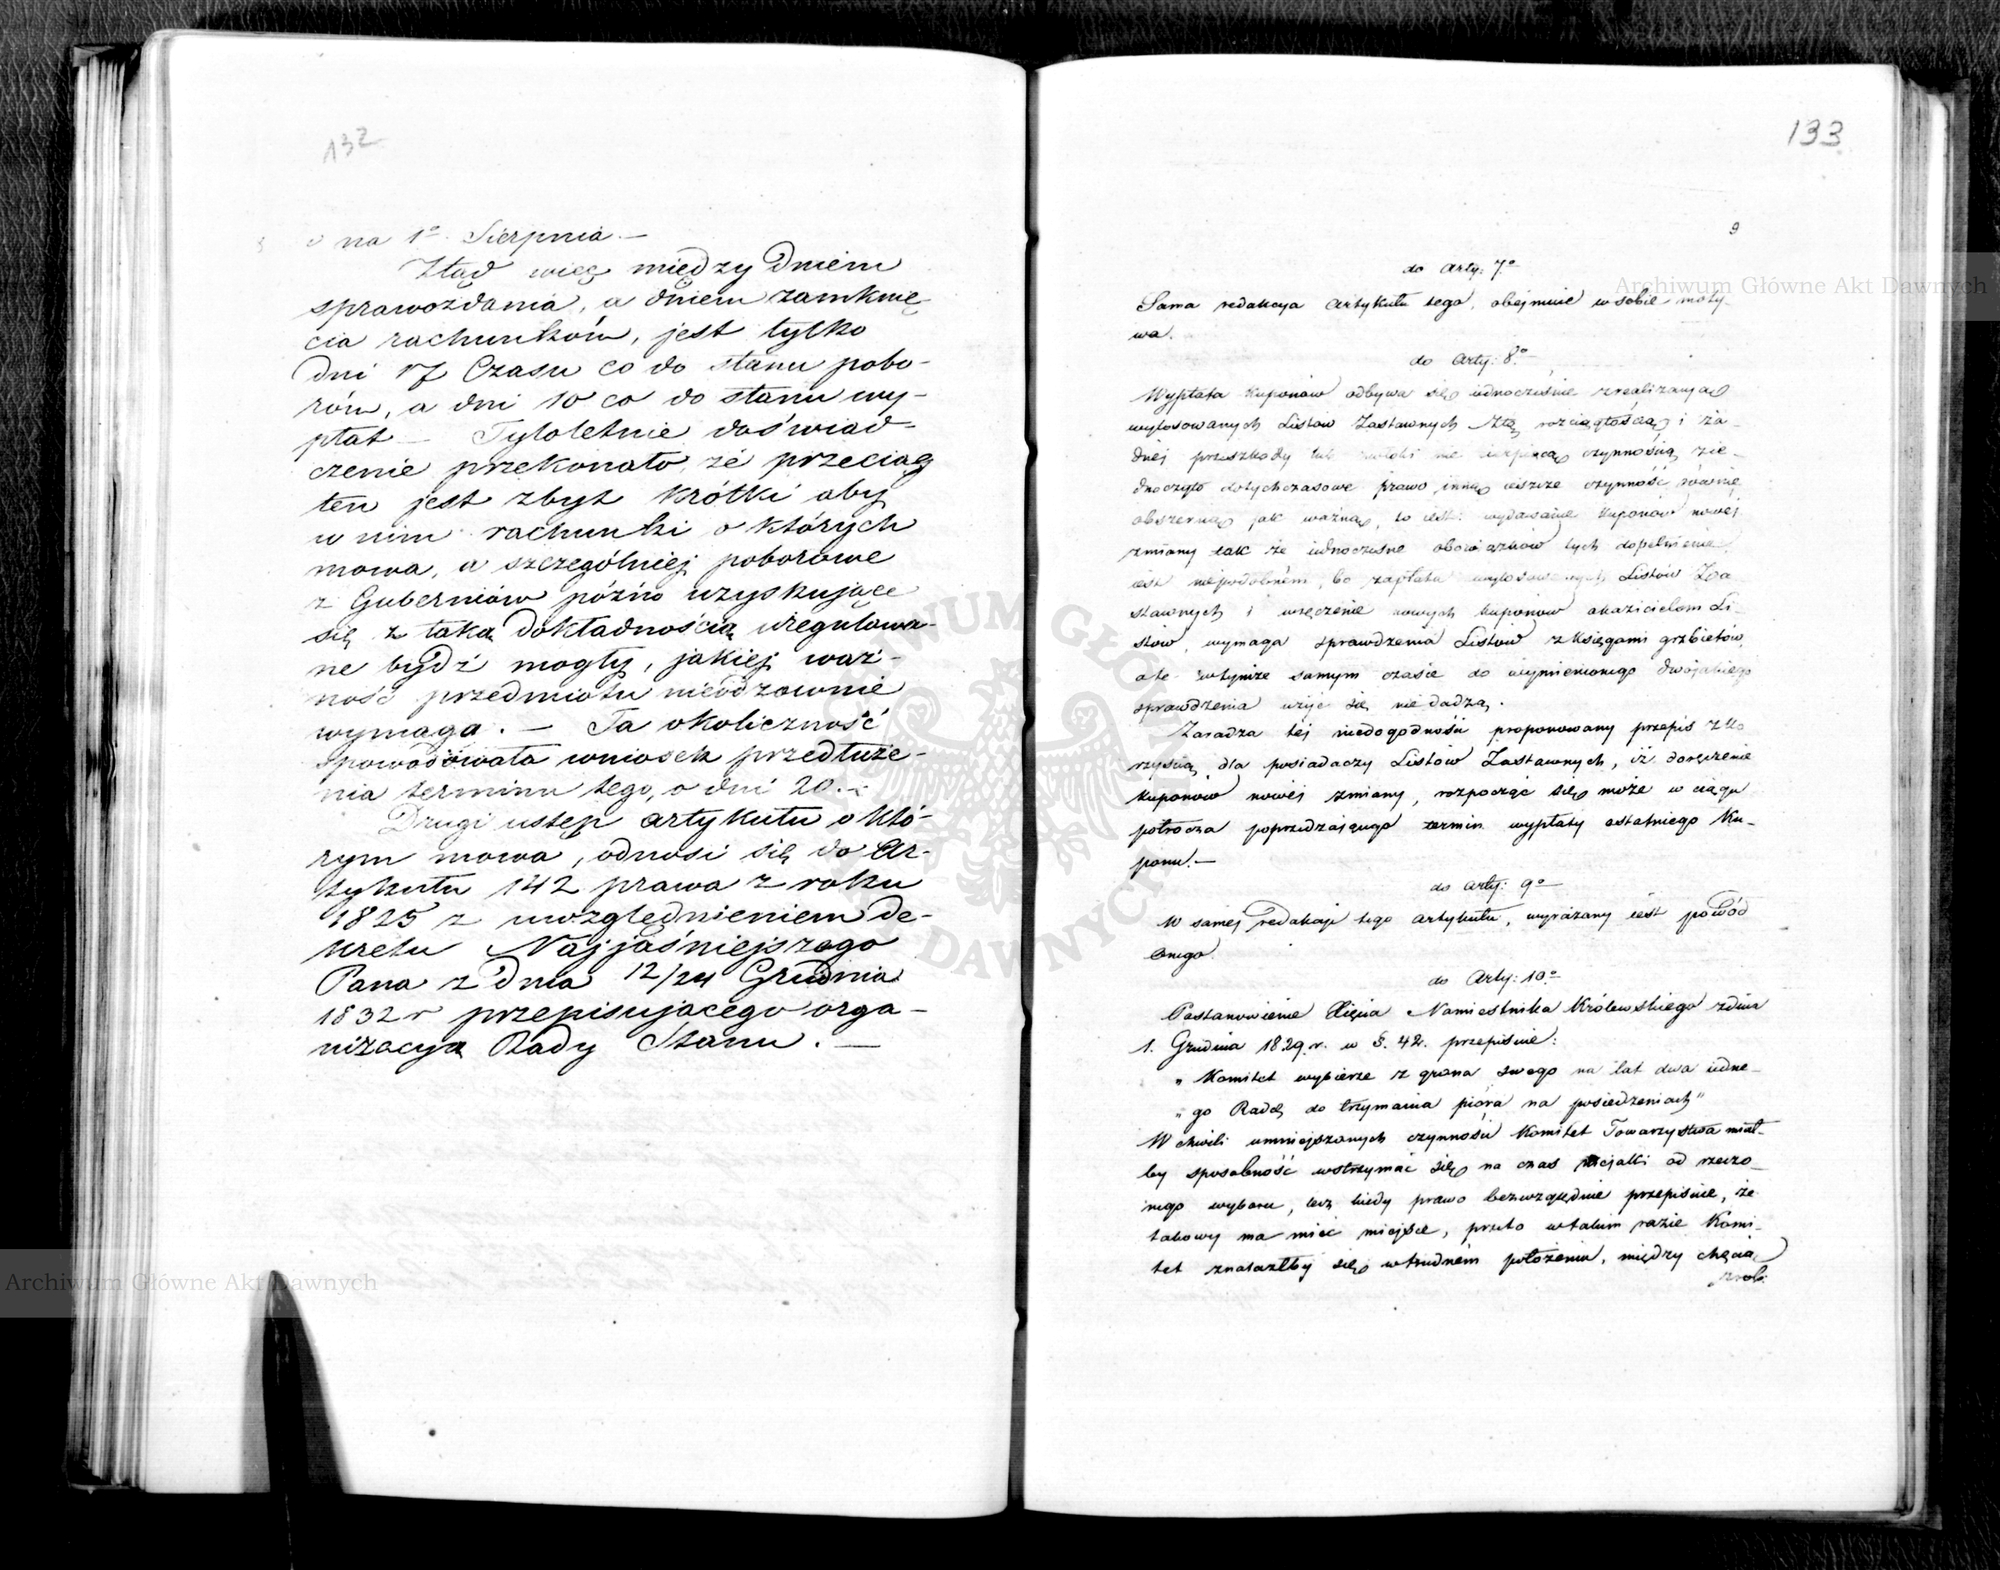 132
na 1º Sierpnia. —
Ztąd więc między Dniem
sprawozdania, a dniem zamknię-
cia rachunków, jest tylko
dni 17 Czasu co do stanu pobo-
rów, a dni 10 co do stanu wy-
płat — Tyloletnie doświad-
czenie przekonało, że przeciąg
ten jest zbyt krótki aby
w nim rachunki o których
mowa, a szczególniej poborowe
z Guberniów późno uzyskujące
się z taką Dokładnością uregulowa-
ne bydź mogły, jakiej waż-
ność przedmiotu nieodzownie
wymaga. — Ta okoliczność
spowodowała wniosek przedłuże-
nia terminu tego, o dni 20. —
Drugi ustęp artykułu o któ-
rym mowa, odnosi się do Ar-
tykułu 142 prawa z roku
1825 z uwzględnieniem de-
kretu Najjaśniejszego
Pana z Dnia 12/24 Grudnia
1832 r przepisującego orga-
nizacyą Rady Stanu. —
133
9
do Arty: 7º
Sama redakcyja Artykułu tego, obejmuie w sobie moty-
wa.
do Arty: 8º
Wypłata kuponów odbywa się iednocześnie z realizacyą
wylosowanych Listów Zastawnych. Z tą rozciągłością i ża-
dnej przeszkody lub zwłoki nie cierpiącą czynnością zie-
dnoczyło dotychczasowe prawo inną ieszcze czynność, równie
obszerną jak ważną, to iest: wydawanie kuponów nowej
zmiany tak że iednoczesne obowiązków tych dopełnienie,
iest niepodobném, bo zapłata wylosowanych Listów Za-
stawnych i wręczenie nowych kuponów okazicielom Li-
stów, wymaga sprawdzenia Listów z księgami grzbietów,
ale w tymże samym czasie do wymienionego dwojakiego
sprawdzenia użyć się nie dadzą.
Zaradza téj niedogodności proponowany przepis z ko-
rzyścią dla posiadaczy Listów Zastawnych, iż doręczenie
kuponów nowéj zmiany, rozpocząć się może w ciągu
półrocza poprzedzającego termin wypłaty ostatniego Ku-
ponu. —
do Arty: 9º
W saméj redakcji tego Artykułu, wyrażany iest powód
onego.
do Arty: 10º
Postanowienie Xięcia Namiestnika Królewskiego z dnia
1. Grudnia 1829. r. w §. 42. przepisuie:
„ Komitet wybierze z grona swego na lat dwa iedne-
„ go Radcę do trzymania pióra na posiedzeniach"
W chwili umniejszonych czynności Komitet Towarzystwa miał-
by sposobność wstrzymać się na czas niejaki od rzeczo-
nego wyboru, lecz kiedy prawo bezwzględnie przepisuie, że
takowy ma mieć miejsce, przeto w takim razie Komi-
tet znalazłby się w trudném położeniu, między chęcią
zrob:
Archiwum Główne Akt Dawnych
Archiwum Główne Akt Dawnych
ARCHIWUM GŁÓWNE AKT DAWNYCH